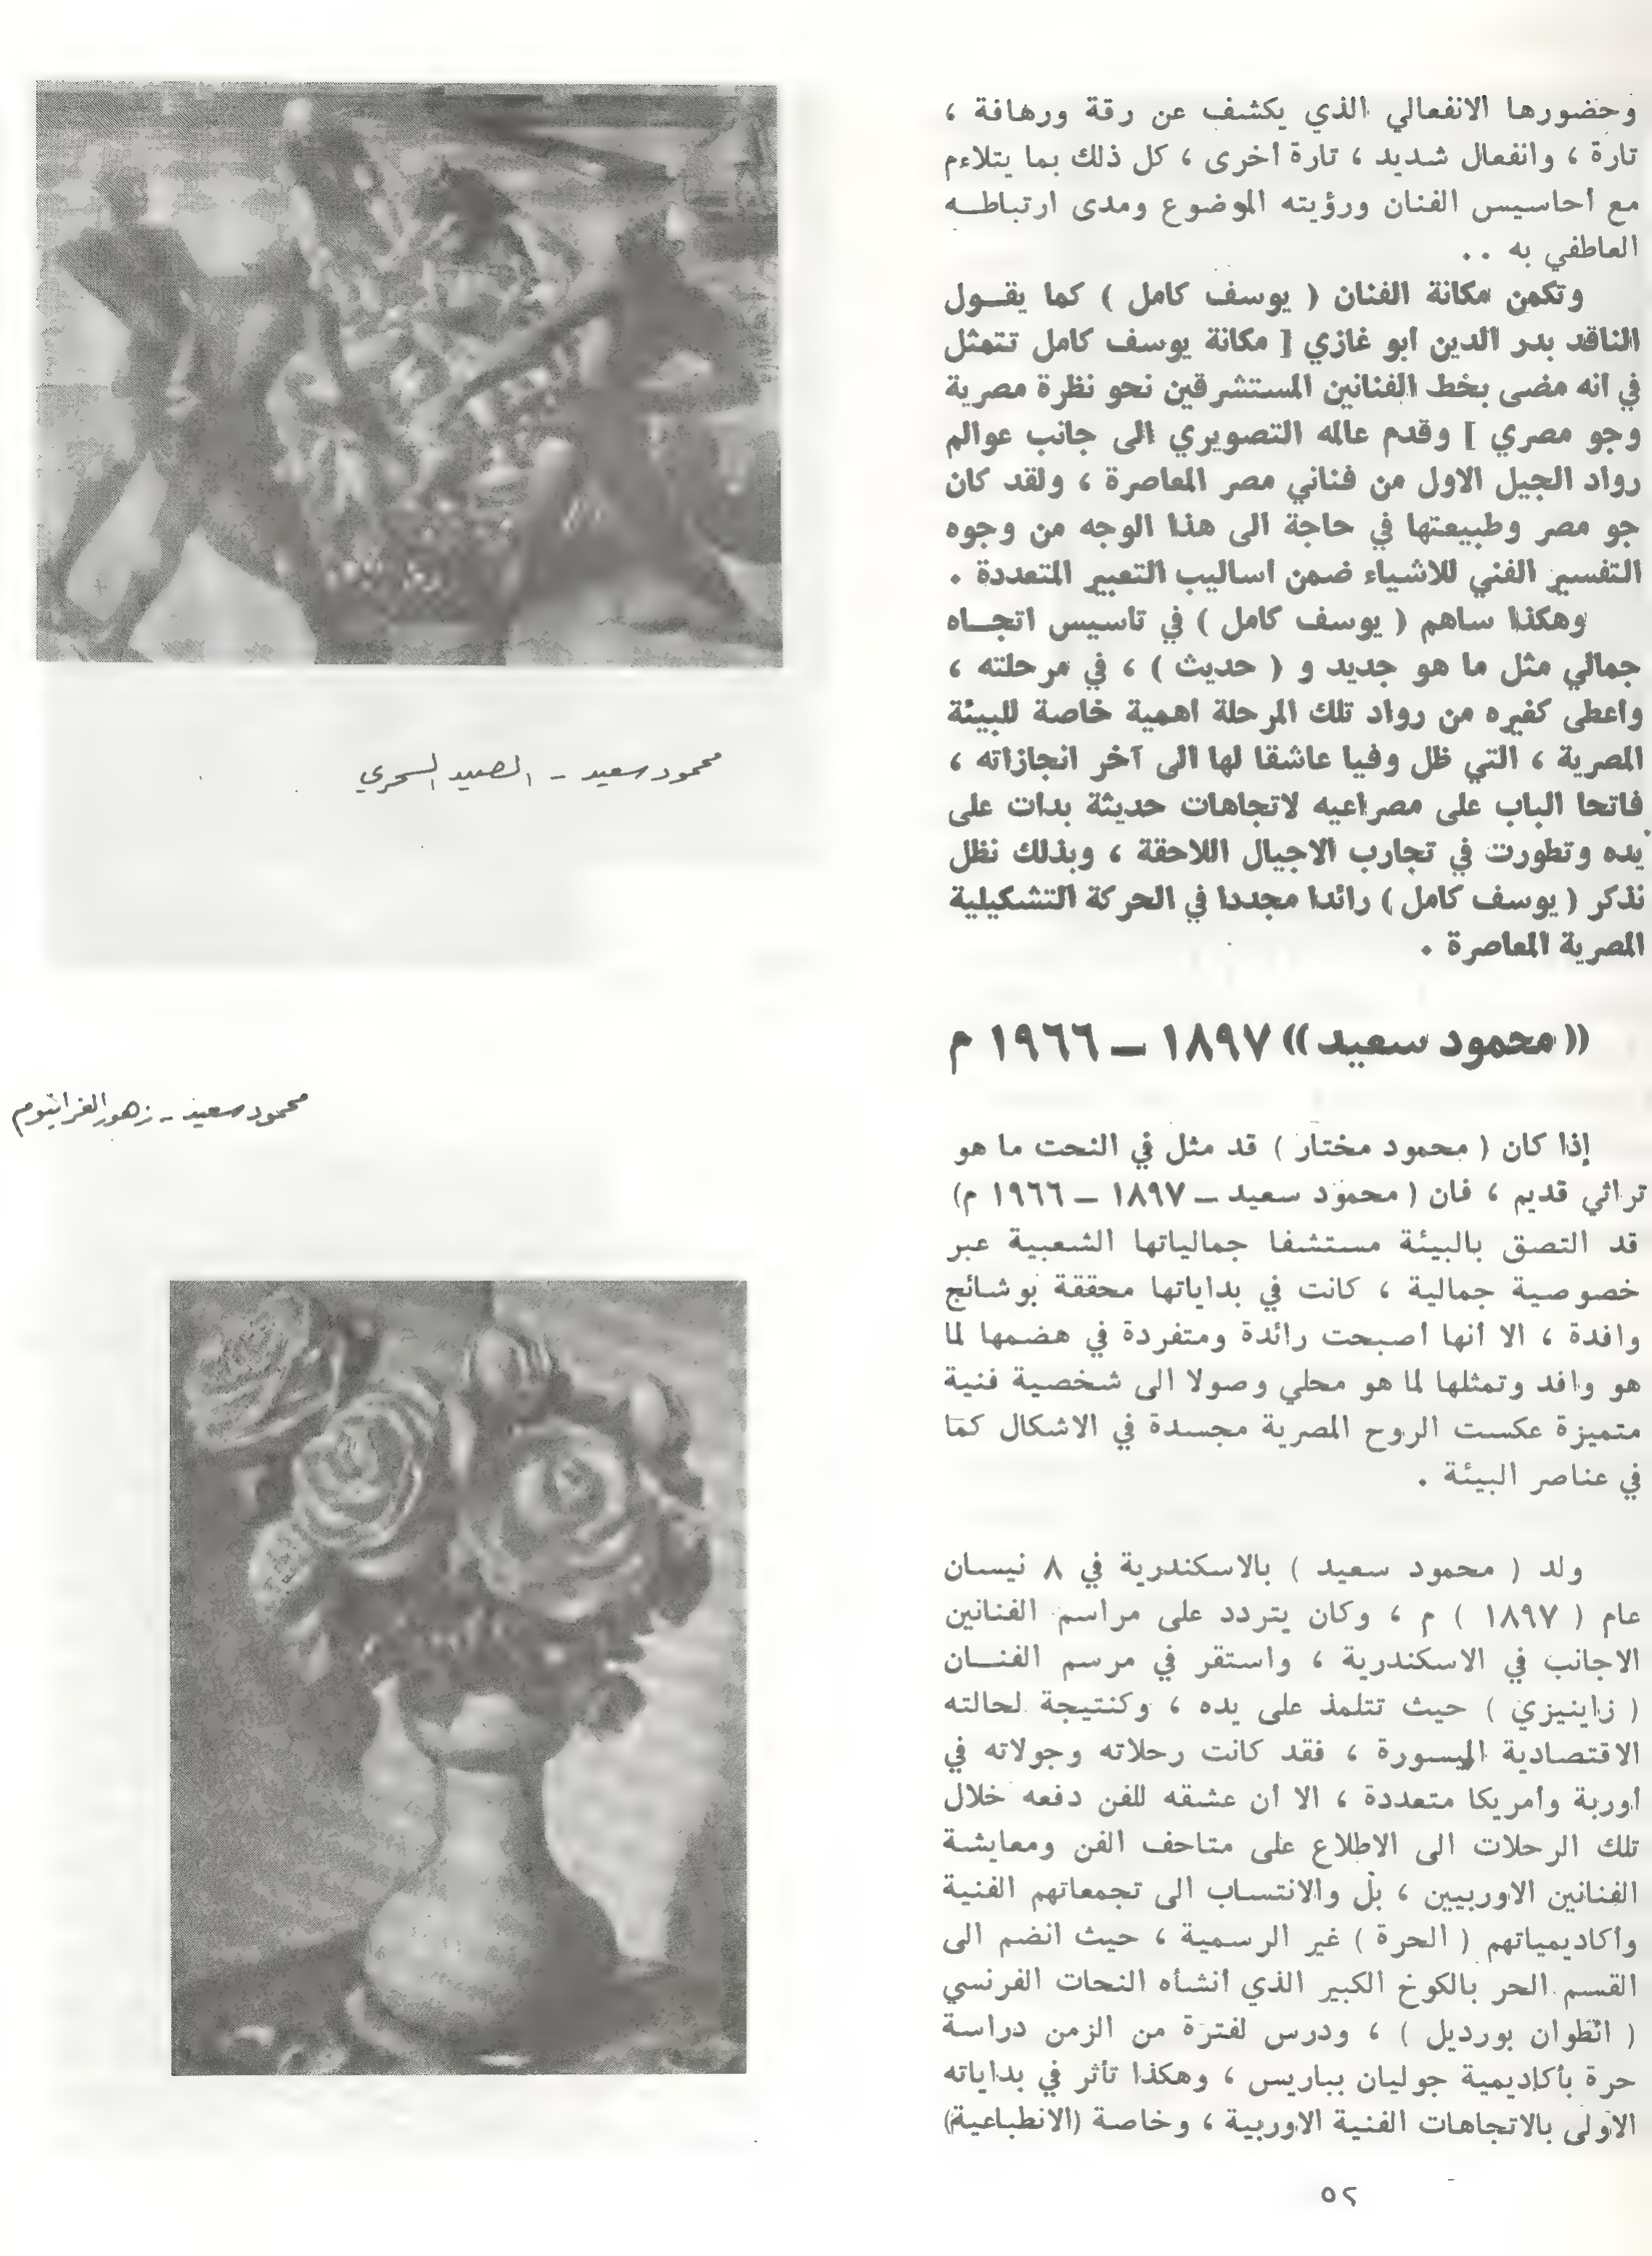 وحضورها الانفعالي الذي يكشف عن رقة ورهافة ،
تارة ، وانفعال شديد ، تارة أخرى ، كل ذلك بما يتلاءم
مع أحاسيس الفنان ورؤيته الموضوع ومدى ارتباطه
العاطفي به ..
وتكمن مكانة الفنان ( يوسف كامل ) كما يقول
الناقد بدر الدين ابو غازي [ مكانة يوسف كامل تتمثل
في انه مضى بخط الفنانين المستشرقين نحو نظرة مصرية
وجو مصري ] وقدم عالمه التصويري الى جانب عوالم
رواد الجيل الاول من فناني مصر المعاصرة ، ولقد كان
جو مصر وطبيعتها في حاجة الى هذا الوجه من وجوه
التفسير الفني للاشياء ضمن اساليب التعبير المتعددة .
وهكذا ساهم ( يوسف كامل ) في تاسيس اتجاه
جمالي مثل ما هو جديد و ( حديث ) ، في مرحلته ،
واعطى كغيره من رواد تلك المرحلة اهمية خاصة للبيئة
المصرية ، التي ظل وفيا عاشقا لها الى آخر انجازاته ،
فاتحا الباب على مصراعيه لاتجاهات حديثة بدات على
يده وتطورت في تجارب الاجيال اللاحقة ، وبذلك نظل
نذكر ( يوسف كامل ) رائدا مجددا في الحركة التشكيلية
المصرية المعاصرة .
«محمود سعيد» ١٨٩٧ – ١٩٦٦ م
إذا كان ( محمود مختار ) قد مثل في النحت ما هو
تراثي قديم ، فان ( محمود سعيد – ١٨٩٧ – ١٩٦٦ م)
قد التصق بالبيئة مستشفا جمالياتها الشعبية عبر
خصوصية جمالية ، كانت في بداياتها محققة بوشائج
وافدة ، الا أنها أصبحت رائدة ومتفردة في هضمها لما
هو وافد وتمثلها لما هو محلي وصولا الى شخصية فنية
متميزة عكست الروح المصرية مجسدة في الاشكال كما
في عناصر البيئة .
ولد ( محمود سعيد ) بالاسكندرية في ٨ نيسان
عام ( ١٨٩٧ ) م ، وكان يتردد على مراسم الفنانين
الاجانب في الاسكندرية ، واستقر في مرسم الفنان
( زاينيزي ) حيث تتلمذ على يده ، وكنتيجة لحالته
الاقتصادية الميسورة ، فقد كانت رحلاته وجولاته في
أوربة وأمريكا متعددة ، الا أن عشقه للفن دفعه خلال
تلك الرحلات الى الاطلاع على متاحف الفن ومعايشة
الفنانين الاوربيين ، بل والانتساب الى تجمعاتهم الفنية
وأكاديمياتهم ( الحرة ) غير الرسمية ، حيث انضم الى
القسم الحر بالكوخ الكبير الذي أنشأه النحات الفرنسي
( انطوان بورديل ) ، ودرس لفترة من الزمن دراسة
حرة بأكاديمية جوليان بباريس ، وهكذا تأثر في بداياته
الاولى بالاتجاهات الفنية الاوربية ، وخاصة (الانطباعية)
محمود سعيد – الصيد السحري
محمود سعيد – زهور الغرانيوم
٥٢